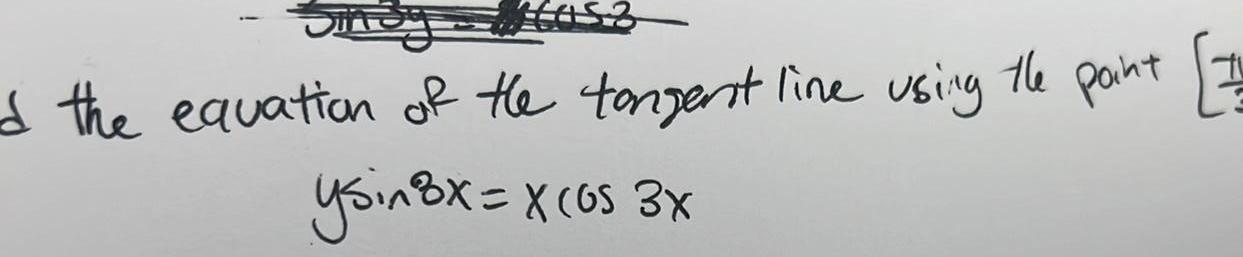 d the equation of the tangent line using the point [π/3
ysin8x = xcos 3x